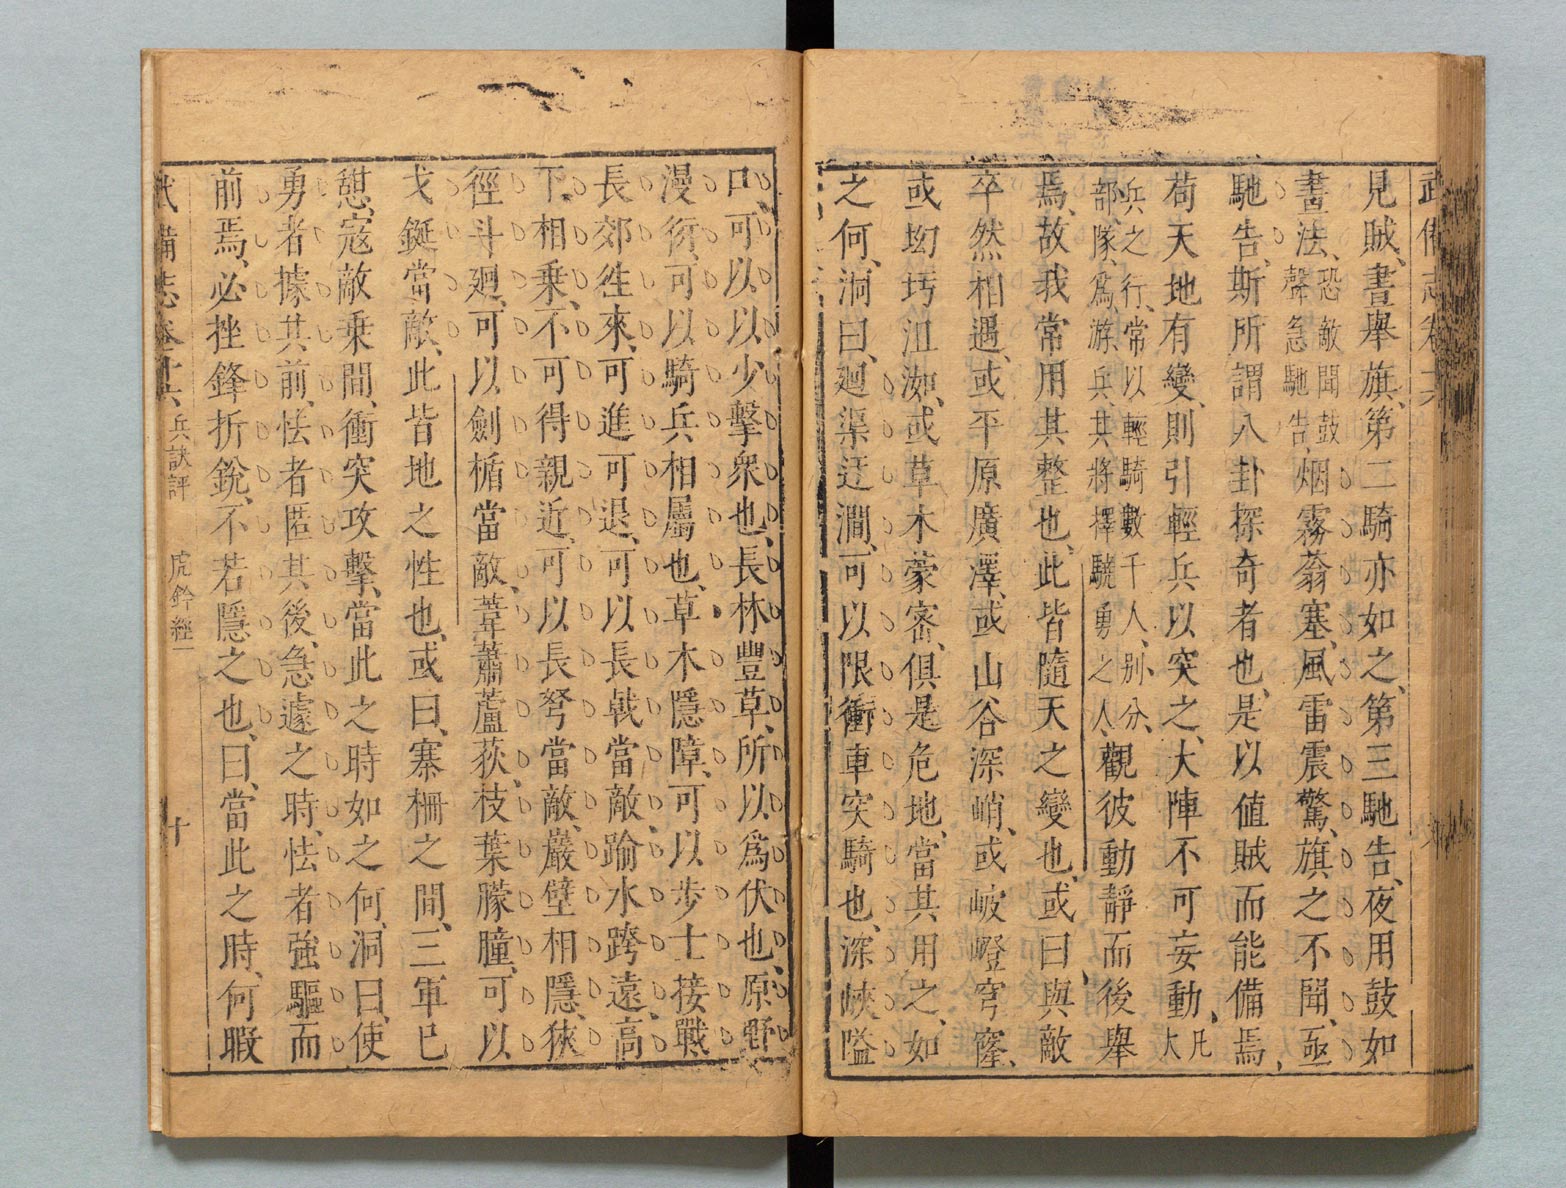 武備志卷十六
見賊、晝舉旗、第二騎亦如之、第三馳告、夜用鼓如
晝法、恐敵聞鼓聲急馳告、烟霧蓊塞、風雷震驚、旗之不聞、亟
馳告、斯所謂八卦探奇者也、是以値賊而能備焉、
苟天地有變、則引輕兵以突之、大陣不可妄動、凡大
兵之行、常以輕騎數千人、別分部隊、爲游兵、其將擇驍勇之人、觀彼動靜而後舉
焉、故我常用其整也、此皆隨天之變也、或曰、與敵
卒然相遇、或平原廣澤、或山谷深峭、或岥嶝穹窿、
或坳圬沮洳、或草木蒙密、俱是危地、當其用之、如
之何、洞曰、廻渠迂澗、可以限衝車突騎也、深峽隘
口、可以以少擊衆也、長林豐草、所以爲伏也、原野
漫衍、可以騎兵相屬也、草木隱障、可以步士接戰
長郊徃來、可進可退、可以長戟當敵、踰水跨遠、高
下相乗、不可得親近、可以長弩當敵、嚴壁相隱、狹
徑斗廻、可以劍楯當敵、葦蕭蘆荻、枝葉朦朣、可以
戈鋋當敵、此皆地之性也、或曰、寨柵之間、三軍已
憇、寇敵乗間、衝突攻擊、當此之時如之何、洞曰、使
勇者據其前、怯者匿其後、急遽之時、怯者強驅而
前焉、必挫鋒折銳、不若隱之也、曰、當此之時、何暇
武備志卷十六 兵訣評 虎鈐經一 十